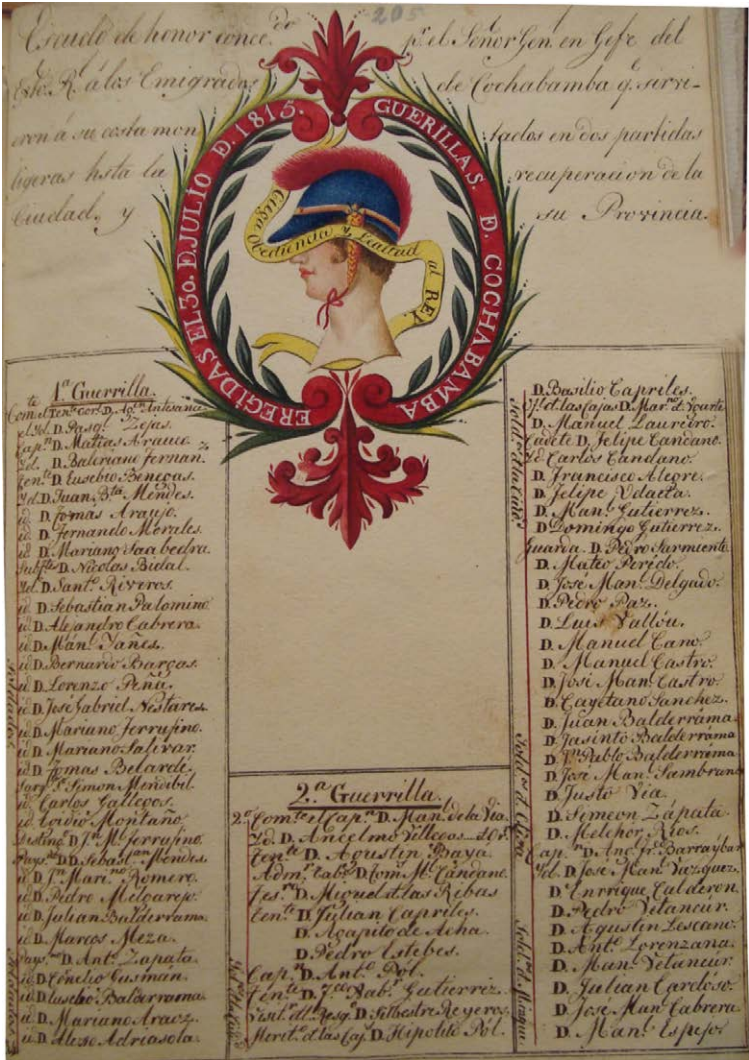 205
Escudo de honor conce.do p.r el Señor Gen. en Gefe del
Exto. R. á los Emigrados de Cochabamba q. sirvi-
eron á su costa mon tados en dos partidas
ligeras hsta la recuperacion de la
Ciudad, y su Provincia.
EREGIDAS EL 30. D. JULIO D. 1815. GUERILLAS. D. COCHABAMBA
Ciega Obediencia y Lealtad al REY.
1.a Guerrilla.
Com.te el Ten.te Cor.l D. Ag.n Antesana
el Yd. D. Pasq.l Zejas.
Cap.n D. Matias Arauco.
Yd. D. Baleriano fernan.z
Ten.te D. Eusebio Benegas.
Yd. D. Juan B.ta Mendes.
id. D. Tomas Araujo.
id. D. Fernando Morales.
id. D. Mariano Saabedra.
Subt.te D. Nicolas Bidal.
Yd. D. Sant.o Riveros.
id D. Sebastian Palomino.
id D. Alejandro Cabrera.
id D. Man.l Yañes.
id D. Bernardo Bargas.
id D. Lorenzo Peña.
id D. José Gabriel Nestares.
id D. Mariano Ferrufino.
id D. Mariano Salivar.
id D. Tomas Belarde.
Sarg.to Simon Mendibil.
id Carlos Gallegos.
id Ovidio Montaño
Disting.o D. J.n M. Ferrufino.
Pays.no D. Sebast.an Mendes.
id D. J.n Mari.no Romero.
id D. Pedro Melgarejo.
id D. Julian Balderrama.
id D. Marcos Meza.
Pays.no D. Ant. Zapata.
id D. Cornelio Gusmán.
id D. Eusebio Balderrama.
id D. Mariano Araoz.
id D. Alexo Adriasola.
Soldados
Soldados
2.a Guerrilla.
2.o Com.te el Cap.n D. Man. de la Via.
Yd. D. Ancelmo Villegas
Ten.te D. Agustin Baya
Adm.r D. Com. M. Candano.
Tes.ro D. Miguel d. las Rebas
Ten.te D. Julian Capriles.
D. Agapito de Acha.
D. Pedro Estebes.
Cap.n D. Ant.o Pol.
Ten.te D. Nab.r Gutierrez
Visit.r d.l Resg.o D. Silbestre Reyeros.
Merit.o d. las Caj. D. Hipolito Pol.
D. Basilio Capriles.
Of.l d. las Cajas D. Mar.no d. Yparte
D. Manuel Lauredo.
Cadete D. Felipe Candano.
Yd. Carlos Candano.
D. Francisco Alegre.
D. Felipe Udaeta.
D. Man.l Gutierrez.
D. Domingo Gutierrez.
Guarda. D. Pedro Sarmiento.
D. Mateo Perido.
D. José Man.l Delgado.
D. Pedro Paz.
D. Luis Vallón.
D. Manuel Cano.
D. Manuel Castro.
D. José Man.l Castro.
D. Cayetano Sanchez.
D. Juan Balderrama.
D. Jasinto Balderrama
D. J.n Pablo Balderrama
D. José Man.l Sambran
D. Justo Via.
D. Simeon Zapata.
D. Melchor Rios.
Cap.n D. Ang.l Fr. Barraybar
Yd. D. Jose Man.l Vazquez.
D. Enrrique Calderon.
D. Pedro Vetancúr.
D. Agustin Lescano.
D. Ant.o Lorenzana.
D. Man.l Vetancúr.
D. Julian Cardoso.
D. José Man.l Cabrera.
D. Man.l Espejo.